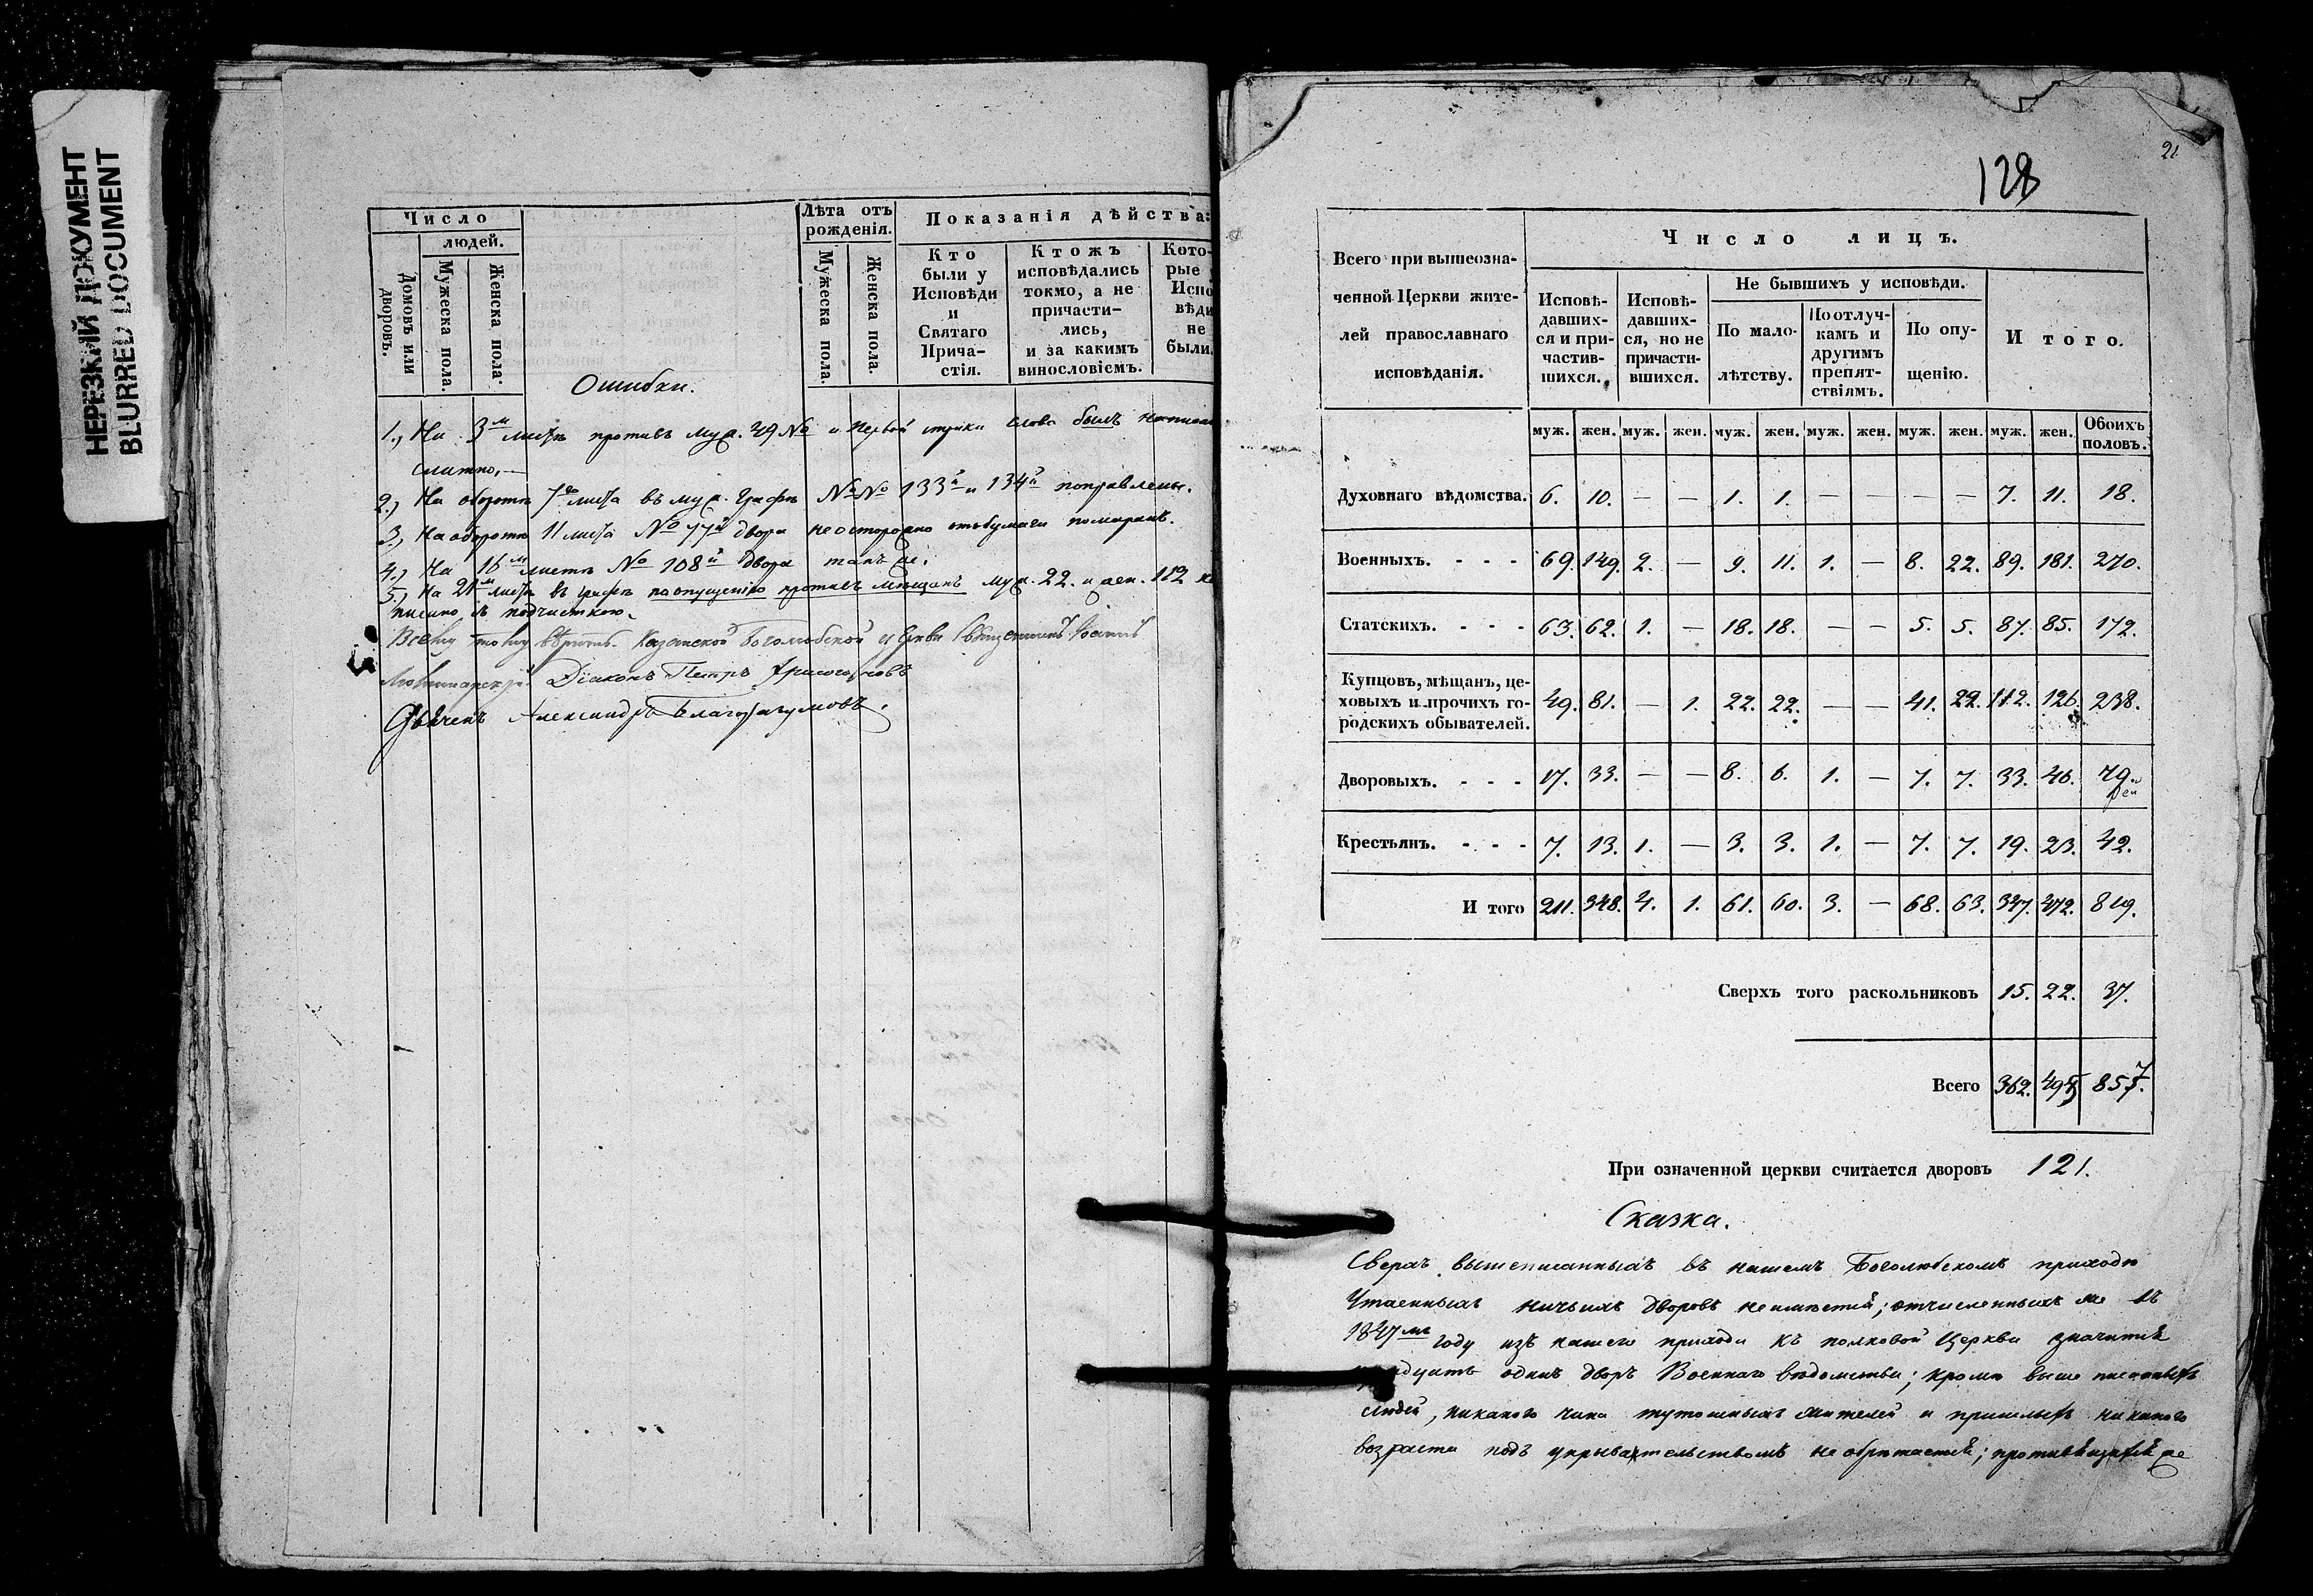 НЕРЕЗКИЙ ДОКУМЕНТ
BLURRED DOCUMENT
Число
людей.
Домовъ или дворовъ.
Мужеска пола.
Женска пола.
Лѣта отъ рожденія.
Мужеска пола.
Женска пола.
Показанія дѣйства:
Кто были у Исповѣди и Святаго Прича- стія.
Ктожъ исповѣдались токмо, а не причасти- лись, и за какимъ винословіемъ.
Кото- рые Испо вѣди не были.
Ошибки.
1., На 3м листѣ противъ муж. 49 № и первой строки слово былъ
слитно,—
2., На оборотѣ 7го листа въ муж. графѣ №№ 133й и 134й поправлены.
3., На оборотѣ 11 листа № 77й двора неосторожно отъ бумаги помаранъ.
4., На 16м листѣ № 108й двора такъ же.
5., На 21м листѣ въ графѣ по опущенію противъ мѣщанъ муж. 22. и жен. 112
писано съ подчисткою.
Всему тому вѣритъ Казанской Боголюбской Церкви Священникъ
Діаконъ Петръ Хрисогоновъ
Дьячекъ Александръ Благоразумовъ.
21
128
Всего при вышеозна- ченной Церкви жите- лей православнаго исповѣданія.
Число лицъ.
Исповѣ- давших- ся и при- частив- шихся.
Исповѣ- давших- ся, но не причасти- вшихся.
Не бывшихъ у исповѣди.
По мало- лѣтству.
По отлуч- камъ и другимъ препят- ствіямъ.
По опу- щенію.
Итого.
муж. жен. муж. жен. муж. жен. муж. жен. муж. жен. муж. жен. Обоихъ половъ.
Духовнаго вѣдомства. 6. 10. — — 1. 1. — — — — 7. 11. 18.
Военныхъ. - - - 69. 149. 2. — 9. 11. 1. — 8. 22. 89. 181. 270.
Статскихъ. - - - 63. 62. 1. — 18. 18. — — 5. 5. 87. 85. 172.
Купцовъ, мѣщанъ, це- ховыхъ и прочихъ го- родскихъ обывателей. 49. 81. — 1. 22. 22. — — 41. 22. 112. 126. 238.
Дворовыхъ. - - - 17. 33. — — 8. 6. 1. — 7. 7. 33. 46. 79.
Крестьянъ. - - - 7. 13. 1. — 3. 3. 1. — 7. 7. 19. 23. 42.
И того 211. 348. 4. 1. 61. 60. 3. — 68. 63. 347. 472. 819.
Сверхъ того раскольниковъ 15. 22. 37.
Всего 362. 495 857.
При означенной церкви считается дворовъ 121.
Сказка.
Сверхъ вышеписанныхъ въ нашемъ Боголюбскомъ приходѣ
утаенныхъ ничьихъ дворовъ неимѣется; отчисленныхъ же въ
1847мъ году изъ нашего прихода къ полковой Церкви значится
одинъ дворъ Военнаго вѣдомства; кромѣ выше писанныхъ
людей, никакого чина тутошныхъ жителей и пришлыхъ никакого
возраста подъ укрывательствомъ не обрѣтается; противъ же